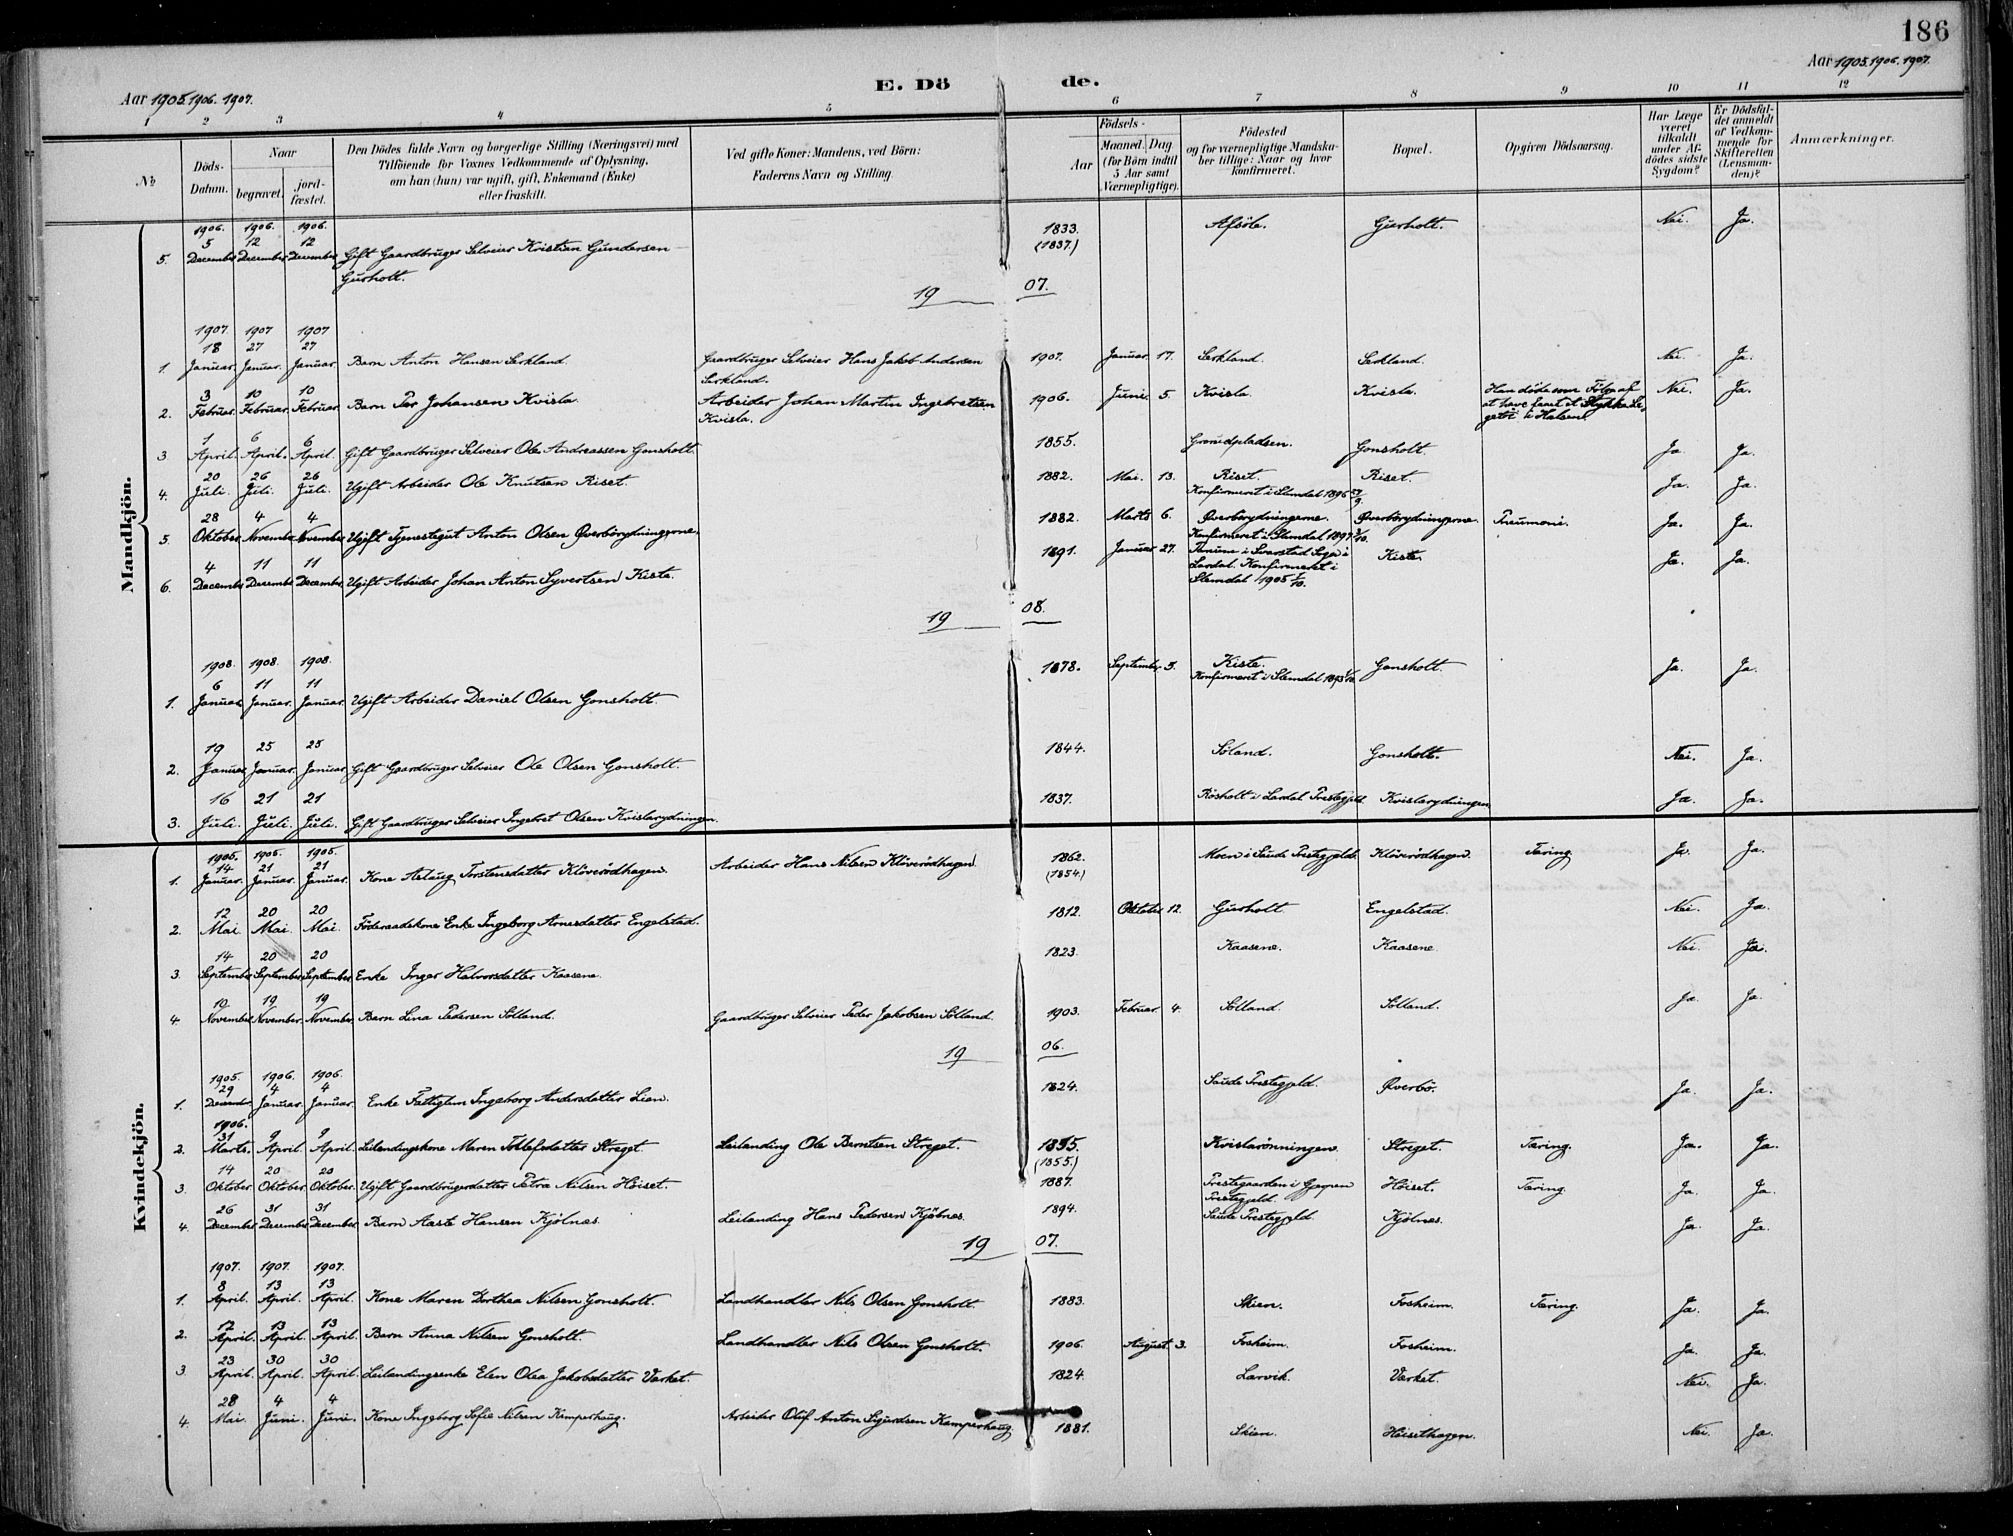 186
Aar 1905. 1906. 1907.
E. Dö de.
Aar 1905. 1906. 1907.
1 2 3 4 5 6 7 8 9 10 11 12
№
Döds-Datum.
Naar
begravet.
jord-fæstet.
Den Dödes fulde Navn og borgerlige Stilling (Næringsvei) med
Tilföiende for Voxnes Vedkommende af Oplysning,
om han (hun) var ugift, gift, Enkemand (Enke)
eller fraskilt.
Ved gifte Koner: Mandens, ved Börn:
Faderens Navn og Stilling.
Födsels-
Aar
Maaned. Dag.
(for Börn indtil
5 Aar samt
Værnepligtige).
Födested
og for værnepligtige Mandska-
ber tillige: Naar og hvor
konfirmeret.
Bopæl.
Opgiven Dödsaarsag.
Har Læge
været
tilkaldt
under Af-
dödes sidste
Sygdom?
Er Dödsfal-
det anmeldt
af Vedkom-
mende for
Skifteretten
(Lensman-
den)?
Anmærkninger.
Mandkjön.
1906. 1906. 1906. 1833. Afsöla. Gurholt. Nei. Ja.
5 12 12 (1837.)
5. December December December Gift Gaardbruger Selveier Kristian Gundersen
Gurholt.
19 07.
1907. 1907 1907
18 27 27
1. Januar. Januar. Januar. Barn Anton Hansen Serkland. Gaardbruger Selveier Hans Jakob Andersen 1907. Januar. 17. Serkland. Serkland. Nei. Ja.
Serkland.
3 10 10
2. Februar. Februar. Februar. Barn Per Johansen Kvisla. Arbeider Johan Martin Ingebretsen 1906. Juni. 5. Kvisla. Kvisla. Han döde som Fölge af Nei. Ja.
Kvisla. at have faaet et Stykke Le-
getöi i Halsen.
1 6 6
3. April. April. April. Gift Gaardbruger Selveier Ole Andreassen Gonsholt. 1855. Gromdpladsen. Gonsholt. Ja. Ja.
20 26 26
4. Juli. Juli. Juli. Ugift Arbeider Ole Knutsen Riset. 1882. Mai. 13. Riset. Riset. Ja. Ja.
Konfirmeret i Slemdal 1896
28 4 4
5. Oktober November November Ugift Tjenestegut Anton Olsen Øverbörydningerne. 1882. Marts 6. Øverbörydningerne. Øverbörydningerne. Pneumoni. Ja. Ja.
Konfirmeret i Slemdal 1897
4 11 11
6. December December December Ugift Arbeider Johan Anton Syvertsen Kiste. 1891. Januar 27. Tanum i Svarstad Sogn i Kiste. Ja. Ja.
Lardal. Konfirmeret i
Slemdal 1905 1/10.
19 08.
1908. 1908. 1908.
6 11 11
1. Januar. Januar. Januar. Ugift Arbeider Daniel Olsen Gonsholt. 1878. September. 5. Kiste. Gonsholt. Ja. Ja.
Konfirmeret i Slemdal 1893
19 25 25
2. Januar Januar. Januar Gift Gaardbruger Selveier Ole Olsen Gonsholt. 1844. Söland. Gonsholt. Nei. Ja.
16 21 21
3. Juli. Juli. Juli. Gift Gaardbruger Selveier Ingebret Olsen Kvislarydningen. 1837. Rösholt i Lardal Prestegjeld. Kvislarydningen Ja. Ja.
Kvindekjön.
1905. 1905. 1905.
14 21 21
1. Januar. Januar. Januar. Kone Aslaug Torstensdatter Klöverödhagen. Arbeider Hans Nilsen Klöverödhagen. 1862. Moen i Saude Prestegjeld. Klöverödhagen. Tæring. Ja. Ja.
(1854.)
12 20 20
2. Mai. Mai. Mai. Föderaadskone Enke Ingeborg Arnesdatter Engelstad. 1812. Oktober 12. Gurholt. Engelstad. Nei. Ja.
14 20 20
3. September September September Enke Inger Halvorsdatter Kaasene. 1823. Kaasene. Kaasene. Nei. Ja.
10 19 19
4. November November. November. Barn Lina Pedersen Sölland. Gaardbruger Selveier Peder Jakobsen Sölland. 1903. Februar. 4. Sölland. Sölland. Ja. Ja.
19 06.
1905. 1906. 1906.
29 4 4
1. December Januar. Januar. Enke Fattiglem Ingeborg Andersdatter Lien. 1824. Saude Prestegjeld. Øverbö. Ja. Ja.
1906.
31 9 9
2. Marts. April. April. Leilendingskone Maren Tollefsdatter Streget. Leilending Ole Berntsen Streget. 1835. Kvislarönningen. Streget. Tæring. Ja. Ja.
(1855.)
14 20 20
3. Oktober. Oktober. Oktober. Ugift Gaardbrugerdatter Petra Nilsen Höiset. 1887. Prestegaarden i Gjerpen Höiset. Tæring. Ja. Ja.
Prestegjeld.
26 31 31
4. December December December. Barn Aaste Hansen Kjölnes. Leilending Hans Pedersen Kjölnes. 1894. Saude Prestegjeld. Kjölnes. Ja. Ja.
19 07.
1907. 1907. 1907.
8 13 13
1. April. April. April. Kone Maren Dorthea Nilsen Gonsholt. Landhandler Nils Olsen Gonsholt. 1883. Skien. Fosheim. Tæring. Ja. Ja.
12 13 13
2. April. April. April. Barn Anna Nilsen Gonsholt. Landhandler Nils Olsen Gonsholt. 1906. August 3. Fosheim. Fosheim. Ja. Ja.
23 30 30
3 April. April. April. Leilendingsenke Elen Olea Jakobsdatter Værket. 1824. Larvik. Værket. Nei. Ja.
28 4 4
4. Mai. Juni. Juni. Kone Ingeborg Sofie Nilsen Kamperhaug. Arbeider Oluf Anton Sigurdsen Kamperhaug. 1881. Skien. Höisethagen. Nei. Ja.